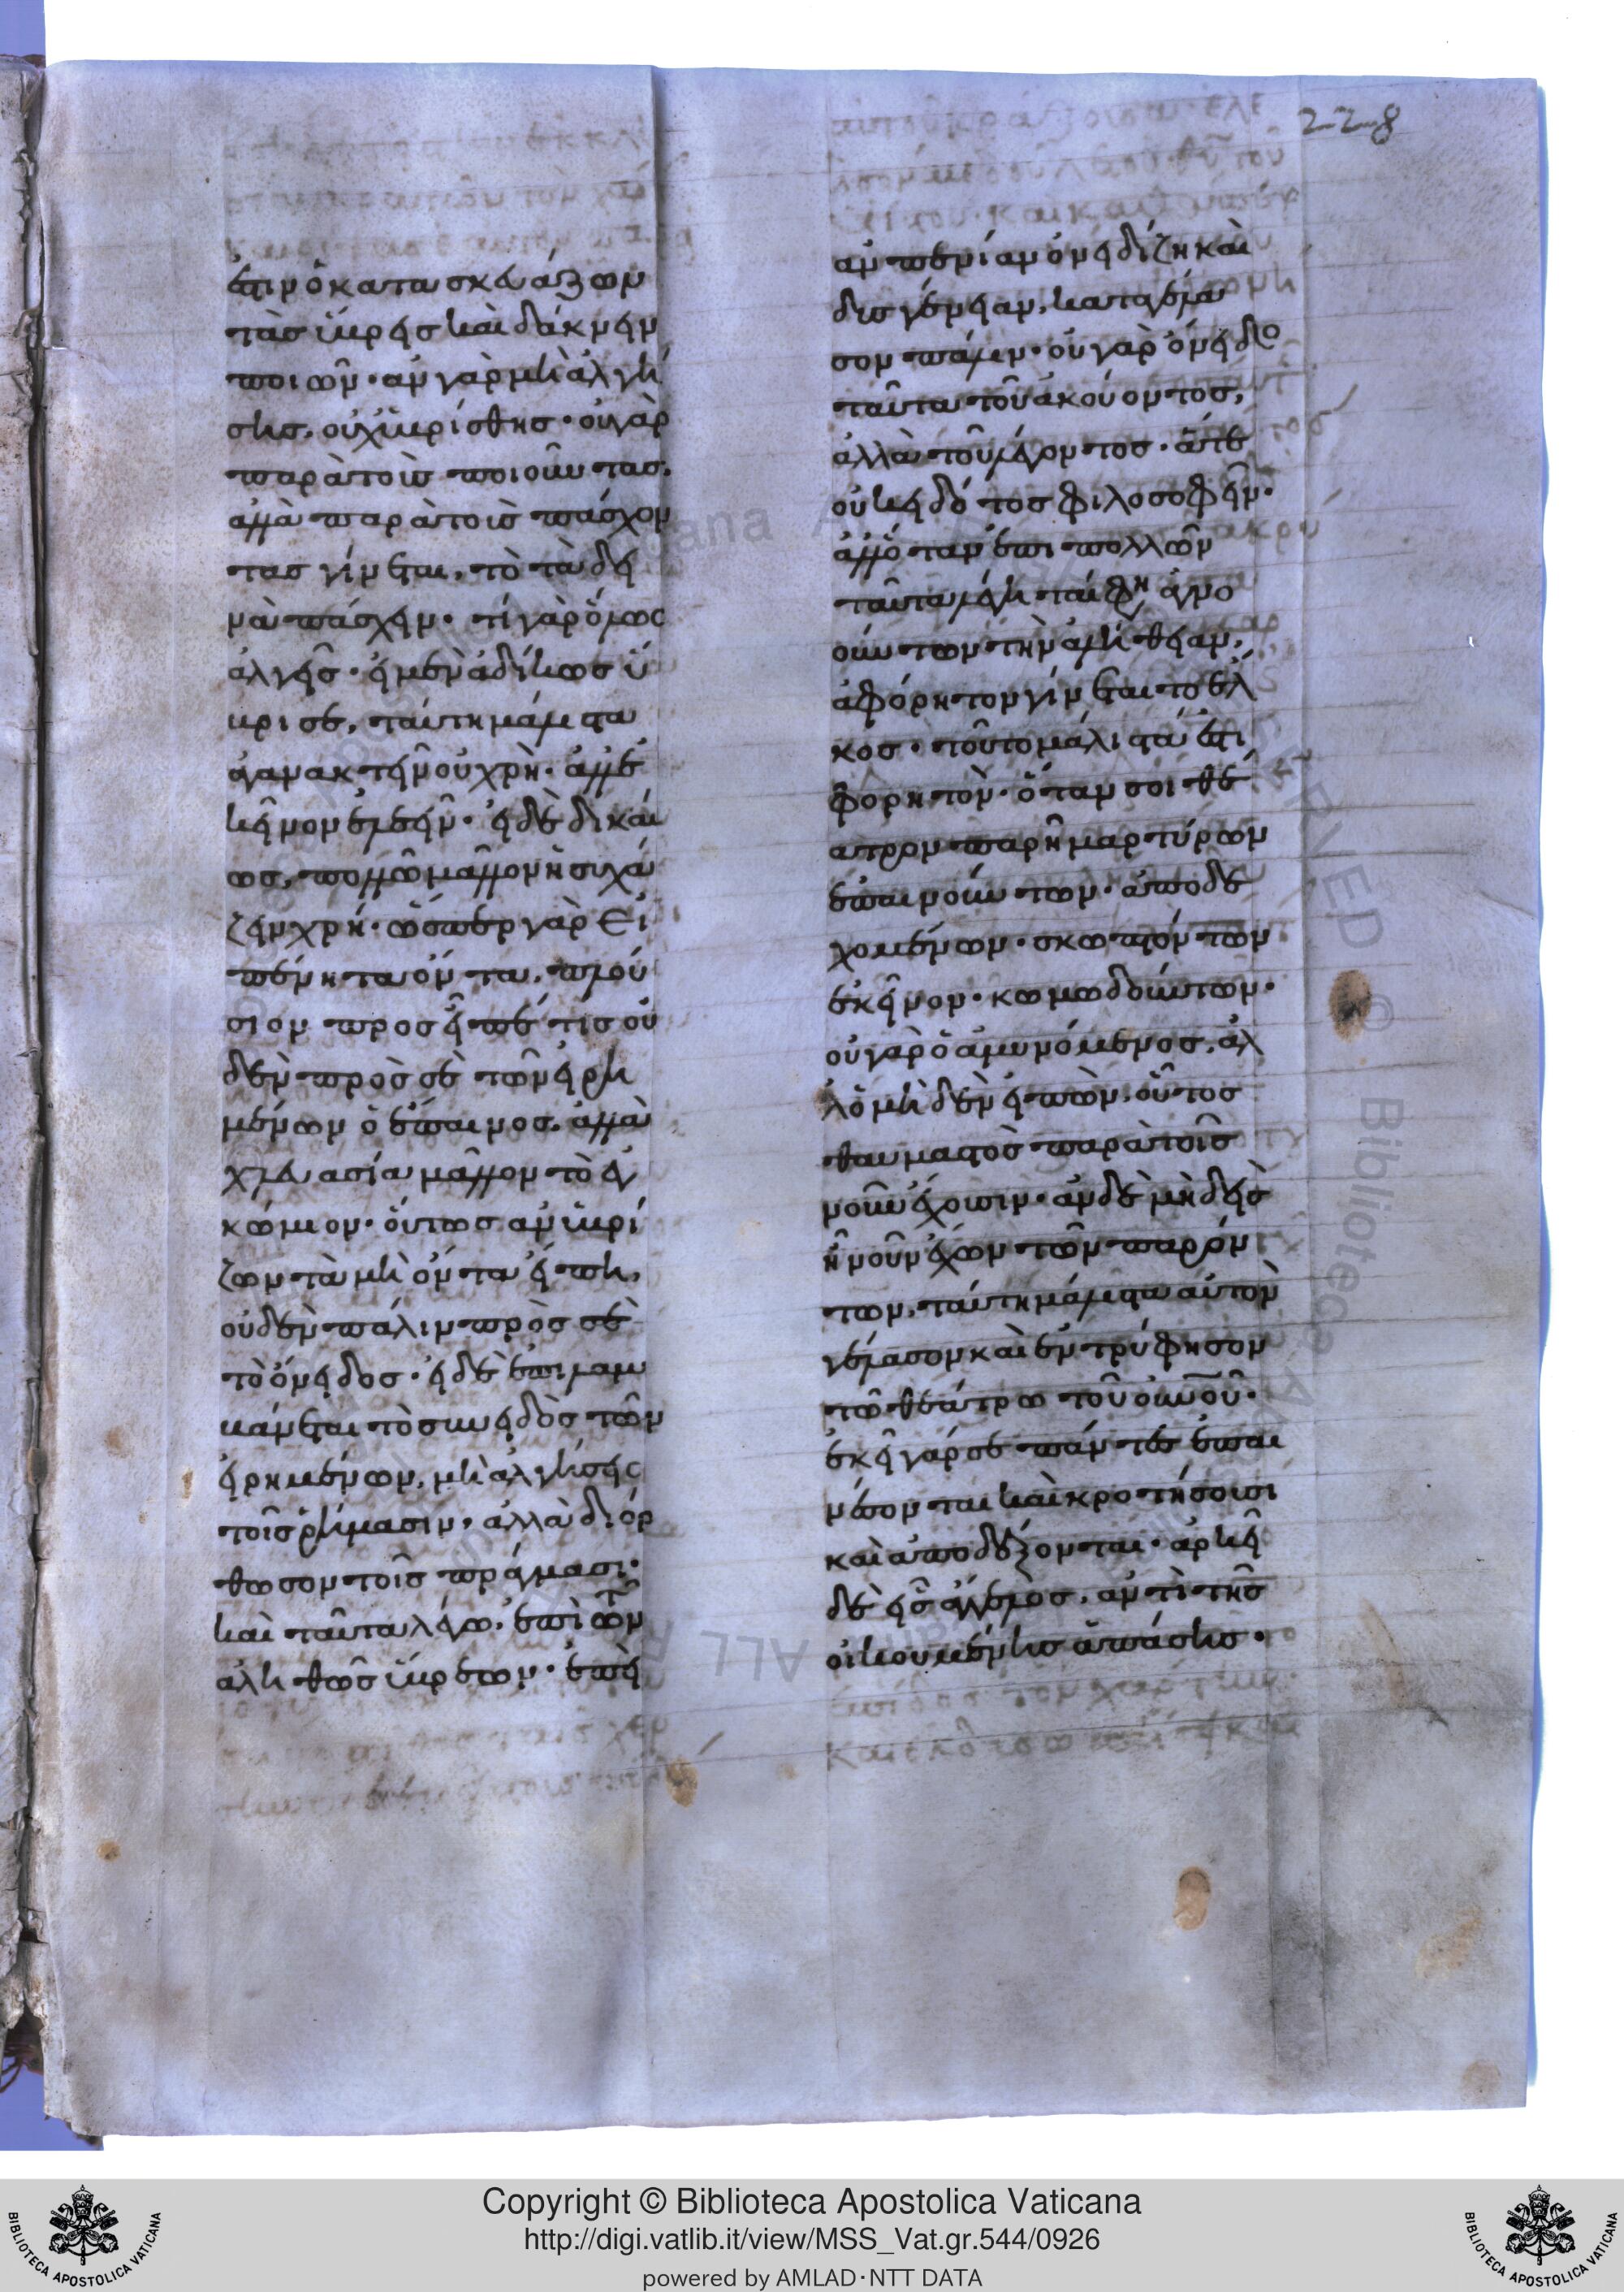 228
ἐστιν ὁ κατασκευάζων
τὰς ὕβρεις καὶ δάκνειν
ποιῶν· ἂν γὰρ μὴ ἀλγή
σης, οὐχ ὑβρίσθης· οὐ γὰρ
παρὰ τοὺς ποιοῦντας,
ἀλλὰ παρὰ τοὺς πάσχον
τας γίνεται, τὸ τὰ δει
νὰ πάσχειν· τί γὰρ ὅλως
ἀλγεῖς· εἰ μὲν ἀδίκως ὕ
βρισε, ταύτη μάλιστα
ἀγανακτεῖν οὐ χρὴ· ἀλλ' ἐ
κεῖνον ἐλεεῖν· εἰ δὲ δικαί
ως, πολλῶ μᾶλλον ἡσυχά
ζειν χρή· ὥσπερ γὰρ εἰ
πένητα ὄντα, πλού
σιον προσεῖπέ τις οὐ
δὲν πρὸς σὲ τῶν εἰρη
μένων ὁ ἔπαινος, ἀλλὰ
χλευασία μᾶλλον τὸ ἐγ
κώμιον· οὕτως ἂν ὑβρί
ζων τὰ μὴ ὄντα εἴπη,
οὐδὲν πάλιν πρὸς σὲ
τὸ ὄνειδος· εἰ δὲ ἐπιλαμ
βάνεται τὸ συνειδὸς τῶν
εἰρημένων, μὴ ἀλγήσεις
τοῖς ῥήμασιν· ἀλλὰ διόρ
θωσον τοῖς πράγμασι·
καὶ ταῦτα λέγω, ἐπὶ τῶν
ἀληθῶς ὕβρεων· ἐπεὶ
ἂν πενίαν ὀνειδίζη καὶ
δυσγένειαν, καταγέλα
σον πάλιν· οὐ γὰρ ὄνειδο
ταῦτα τοῦ ἀκούοντος,
ἀλλὰ τοῦ λέγοντος· ἅτε
οὐκ εἰδότος φιλοσοφεῖν·
ἀλλ' ὅταν ἐπὶ πολλῶν
ταῦτα λέγηται φη ἀγνο
ούντων τὴν ἀλήθειαν,
ἀφόρητον γίνεται τὸ ἕλ
κος· τοῦτο μάλιστά ἐστι
φορητὸν· ὅταν σοι θέ
ατρον παρῆ μαρτύρων
ἐπαινούντων· ἀποδε
χομένων· σκωπτόντων
ἐκεῖνον· κωμωδούντων·
οὐ γὰρ ὁ ἀμυνόμενος, ἀλ
λ' ὁ μηδὲν εἰπὼν, οὗτος
θαυμαστὸς παρὰ τοῖς
νοῦν ἔχουσιν· ἂν δὲ μηδεὶς
ἦ νοῦν ἔχων τῶν παρόν
των, ταύτη μάλιστα αὐτὸν
γέλασον καὶ ἐντρύφησον
τῶ θεάτρω τοῦ οὐνοῦ·
ἐκεῖ γάρ σε πάντες ἐπαι
νέσονται καὶ κροτήσουσι
καὶ ἀποδέξονται· ἀρκεῖ
δὲ εἷς ἄγγελος, ἀντὶ τῆς
οἰκουμένης ἁπάσης·
Copyright © Biblioteca Apostolica Vaticana
http://digi.vatlib.it/view/MSS_Vat.gr.544/0926
powered by AMLAD·NTT DATA
BIBLIOTECA APOSTOLICA VATICANA
BIBLIOTECA APOSTOLICA VATICANA